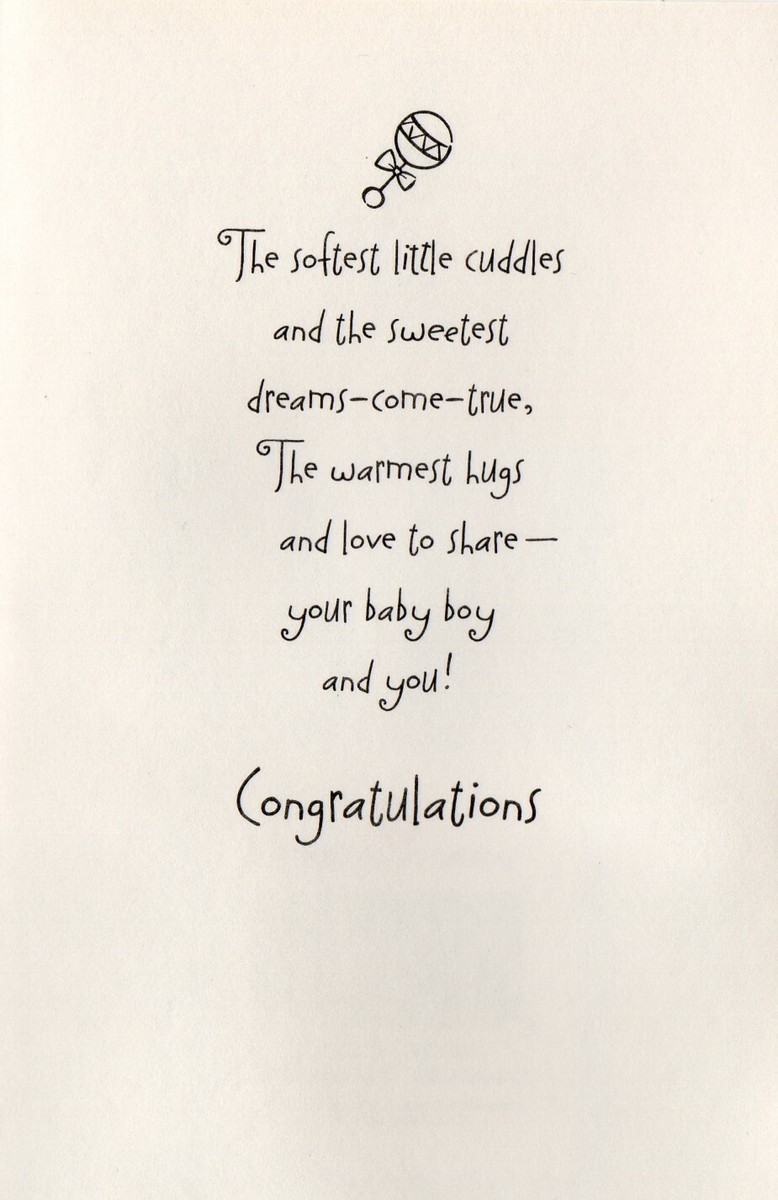 The softest little cuddles
and the sweetest
dreams-come-true,
The warmest hugs
and love to share—
your baby boy
and you!
Congratulations